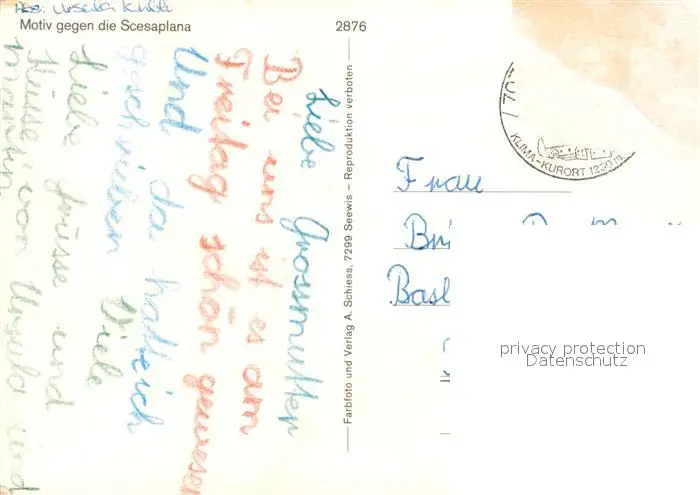 Abs. Ursula
Motiv gegen die Scesaplana
2876
Liebe Grossmutter
Bei uns ist es am
Freitag schön gewesen
Und da hatt ich
geschrieben Viele
Liebe grüsse und
Küsse von Ursula und
Farbfoto und Verlag A. Schiess, 7299 Seewis – Reproduktion verboten
KLIMA-KURORT 1230 m
Frau
Bri
Basl
privacy protection
Datenschutz